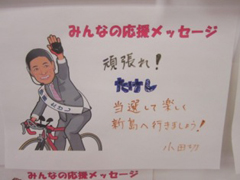 みんなの応援メッセージ
頑張れ！
たけし
当選して楽しく
新島へ行きましょう！
小田切
みんなの応援メッセージ